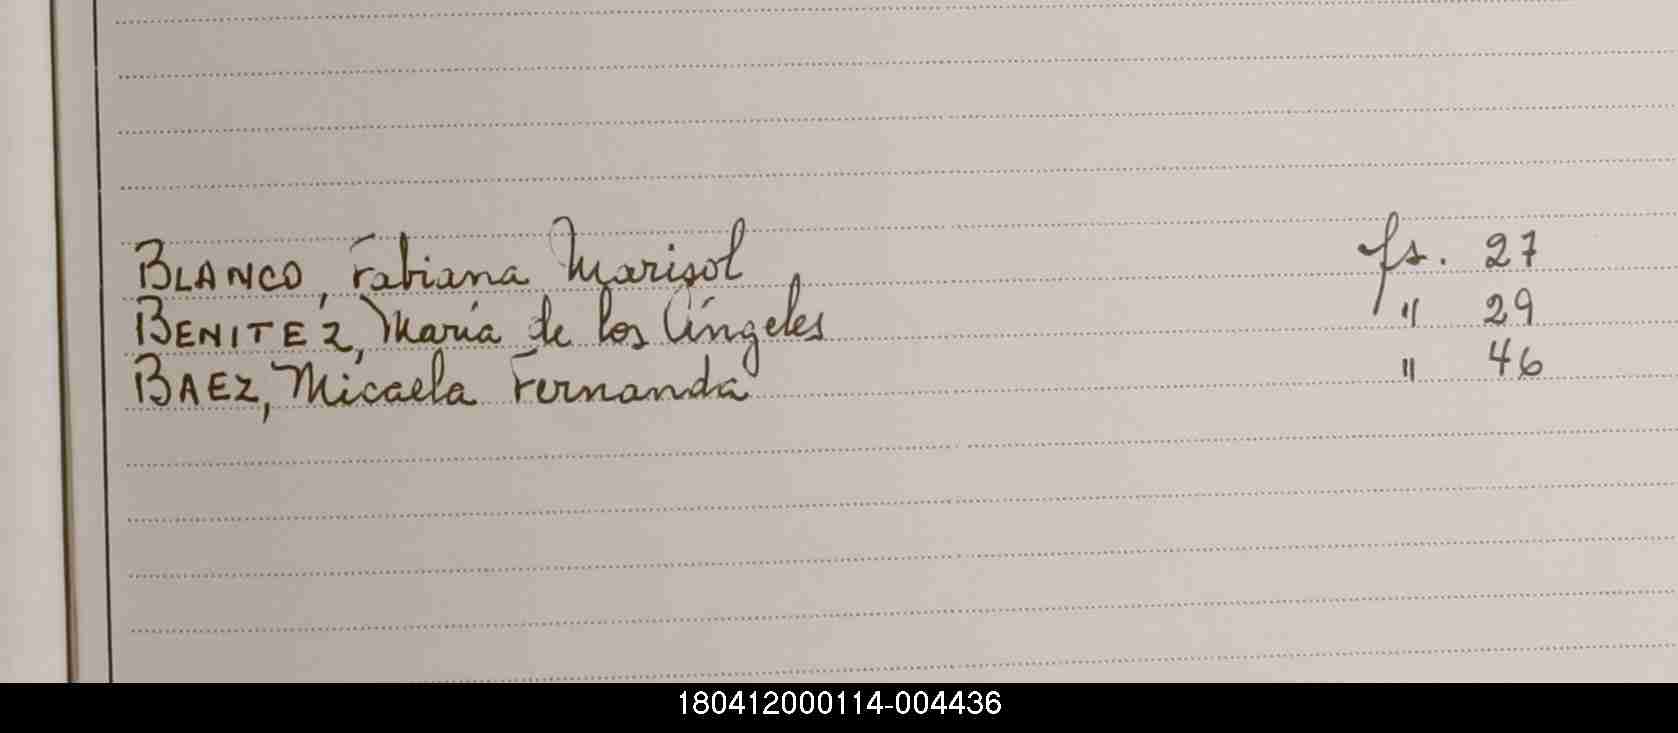 BLANCO, Fabiana Marisol fs. 27
BENITEZ, María de los Ángeles " 29
BAEZ, Micaela Fernanda " 46
180412000114-004436